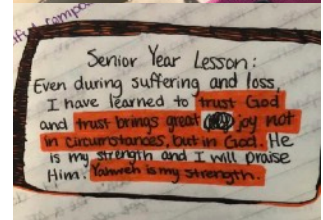 Senior Year Lesson:
Even during suffering and loss,
I have learned to trust God
and trust brings great joy not
in circumstances, but in God. He
is my strength and I will praise
Him. Yahweh is my strength.